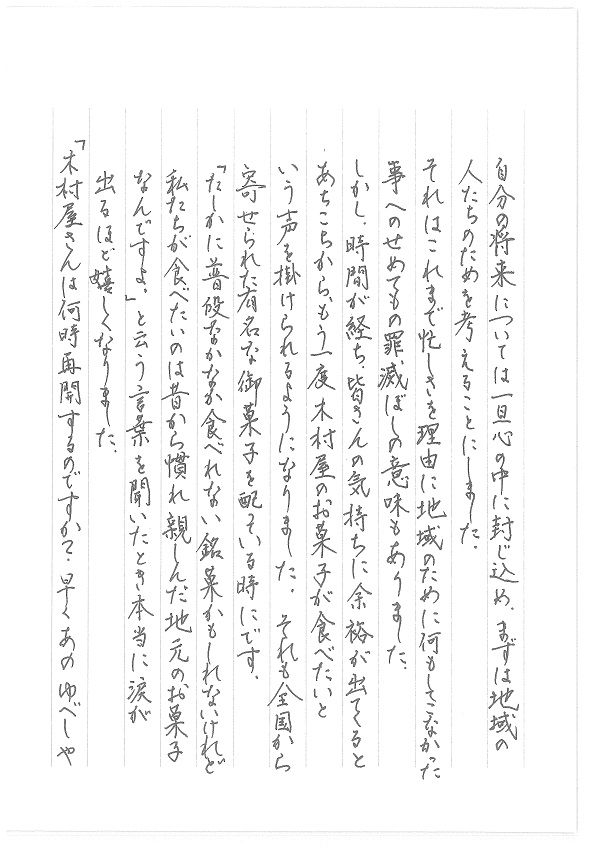 自分の将来については一旦心の中に封じ込め、まずは地域の
人たちのためを考えることにしました。
それはこれまで忙しさを理由に地域のために何もしてこなかった
事へのせめてもの罪滅ぼしの意味もありました。
しかし、時間が経ち、皆さんの気持ちに余裕が出てくると
あちこちから、もう一度木村屋のお菓子が食べたいと
いう声を掛けられるようになりました。それも全国から
寄せられた有名な御菓子を配っている時にです。
「たしかに普段なかなか食べれない銘菓かもしれないけれど
私たちが食べたいのは昔から慣れ親しんだ地元のお菓子
なんですよ。」と云う言葉を聞いたとき本当に涙が
出るほど嬉しくなりました。
「木村屋さんは何時再開するのですか？早くあのゆべしや